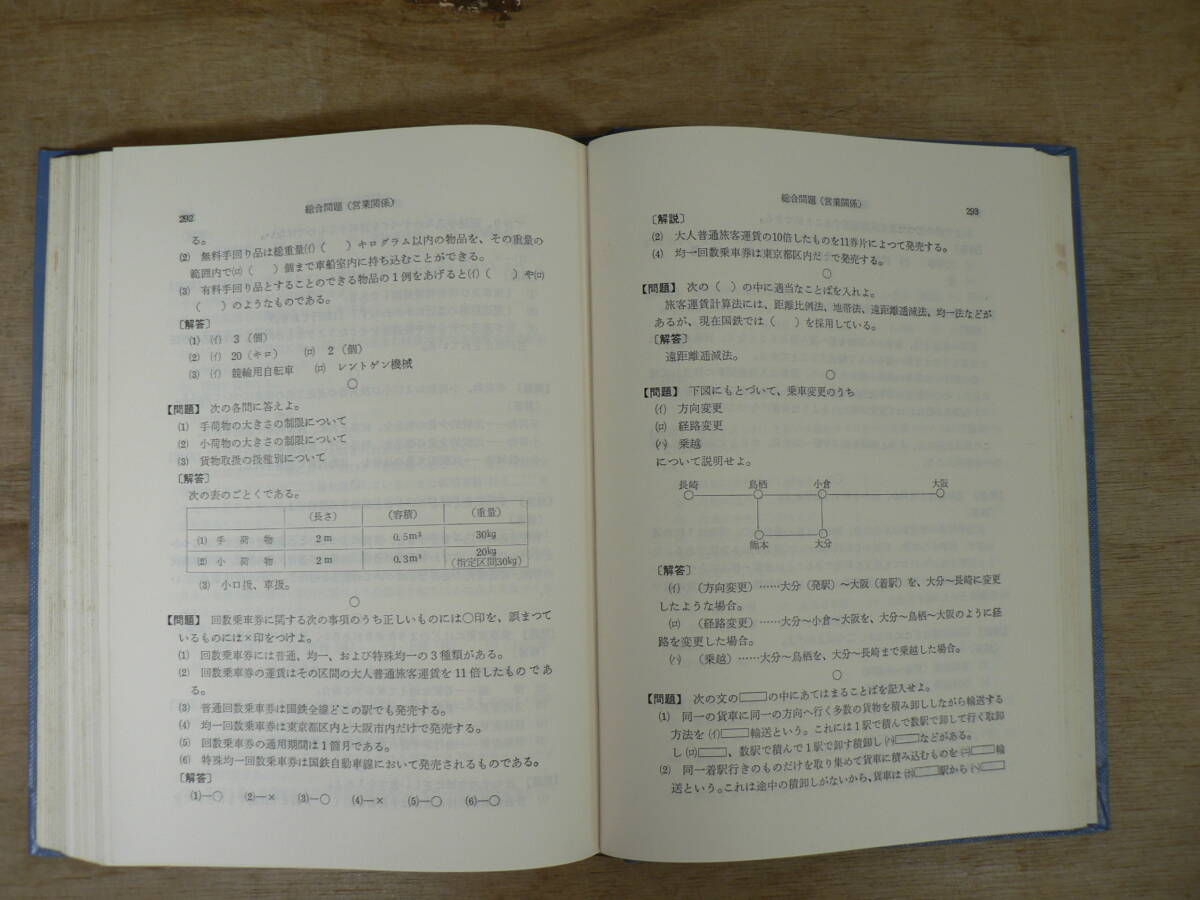 292
総合問題(営業関係)
る。
(2) 無料手回り品は総重量(イ)( )キログラム以内の物品を、その重量の
範囲内で(ロ)( )個まで車船室内に持ち込むことができる。
(3) 有料手回り品とすることのできる物品の1例をあげると(イ)( )や(ロ)
( )のようなものである。
〔解答〕
(1) (イ) 3(個)
(2) (イ) 20(キロ) (ロ) 2(個)
(3) (イ) 競輪用自転車 (ロ) レントゲン機械
○
【問題】 次の各問に答えよ。
(1) 手荷物の大きさの制限について
(2) 小荷物の大きさの制限について
(3) 貨物取扱の扱種別について
〔解答〕
次の表のごとくである。
(長さ) (容積) (重量)
(1) 手荷物 2m 0.5m³ 30kg
(2) 小荷物 2m 0.3m³ 20kg
(指定区間30kg)
(3) 小口扱、車扱。
○
【問題】 回数乗車券に関する次の事項のうち正しいものには○印を、誤まつて
いるものには×印をつけよ。
(1) 回数乗車券には普通、均一、および特殊均一の3種類がある。
(2) 回数乗車券の運賃はその区間の大人普通旅客運賃を11倍したものであ
る。
(3) 普通回数乗車券は国鉄全線どこの駅でも発売する。
(4) 均一回数乗車券は東京都区内と大阪市内だけで発売する。
(5) 回数乗車券の通用期間は1箇月である。
(6) 特殊均一回数乗車券は国鉄自動車線において発売されるものである。
〔解答〕
(1)―○ (2)―× (3)―○ (4)―× (5)―○ (6)―○
総合問題(営業関係)
293
〔解説〕
(2) 大人普通旅客運賃の10倍したものを11券片によつて発売する。
(4) 均一回数乗車券は東京都区内だけで発売する。
○
【問題】 次の( )の中に適当なことばを入れよ。
旅客運賃計算法には、距離比例法、地帯法、遠距離逓減法、均一法などが
あるが、現在国鉄では( )を採用している。
〔解答〕
遠距離逓減法。
○
【問題】 下図にもとづいて、乗車変更のうち
(イ) 方向変更
(ロ) 経路変更
(ハ) 乗越
について説明せよ。
長崎 鳥栖 小倉 大阪
熊本 大分
〔解答〕
(イ) (方向変更)……大分(発駅)～大阪(着駅)を、大分～長崎に変更
したような場合。
(ロ) (経路変更)……大分～小倉～大阪を、大分～鳥栖～大阪のように経
路を変更した場合。
(ハ) (乗越)……大分～鳥栖を、大分～長崎まで乗越した場合。
○
【問題】 次の文の□の中にあてはまることばを記入せよ。
(1) 同一の貨車に同一の方向へ行く多数の貨物を積み卸ししながら輸送する
方法を(イ)□輸送という。これには1駅で積んで数駅で卸して行く取卸
し(ロ)□、数駅で積んで1駅で卸す積卸し(ハ)□などがある。
(2) 同一着駅行きのものだけを取り集めて貨車に積み込むものを(ニ)□輸
送という。これは途中の積卸しがないから、貨車は(ホ)□駅から(ヘ)□